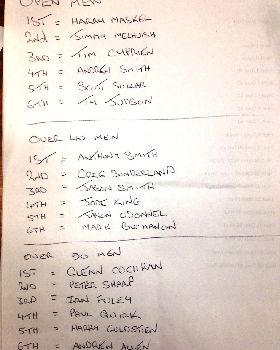 OPEN MEN
1ST = HARRY MASKEL
2nd = SIMON MELHUISH
3RD = TIM CYPRIEN
4TH = ANDREW SMITH
5TH = SCOTT
6TH = TY JUDSON
OVER 40 MEN
1ST = ANTHONY SMITH
2ND = CRIG SUNDERLAND
3RD = JASON SMITH
4TH = KING
5TH = JASON ODONNEL
6TH = MARK BUCHANON
OVER 50 MEN
1ST = GLENN COCHRAN
2ND = PETER SHARP
3RD = IAN FOLEY
4TH = PAUL QUIRK
5TH = HARRY GOLDSTIEN
6TH = ANDREW ALLEN